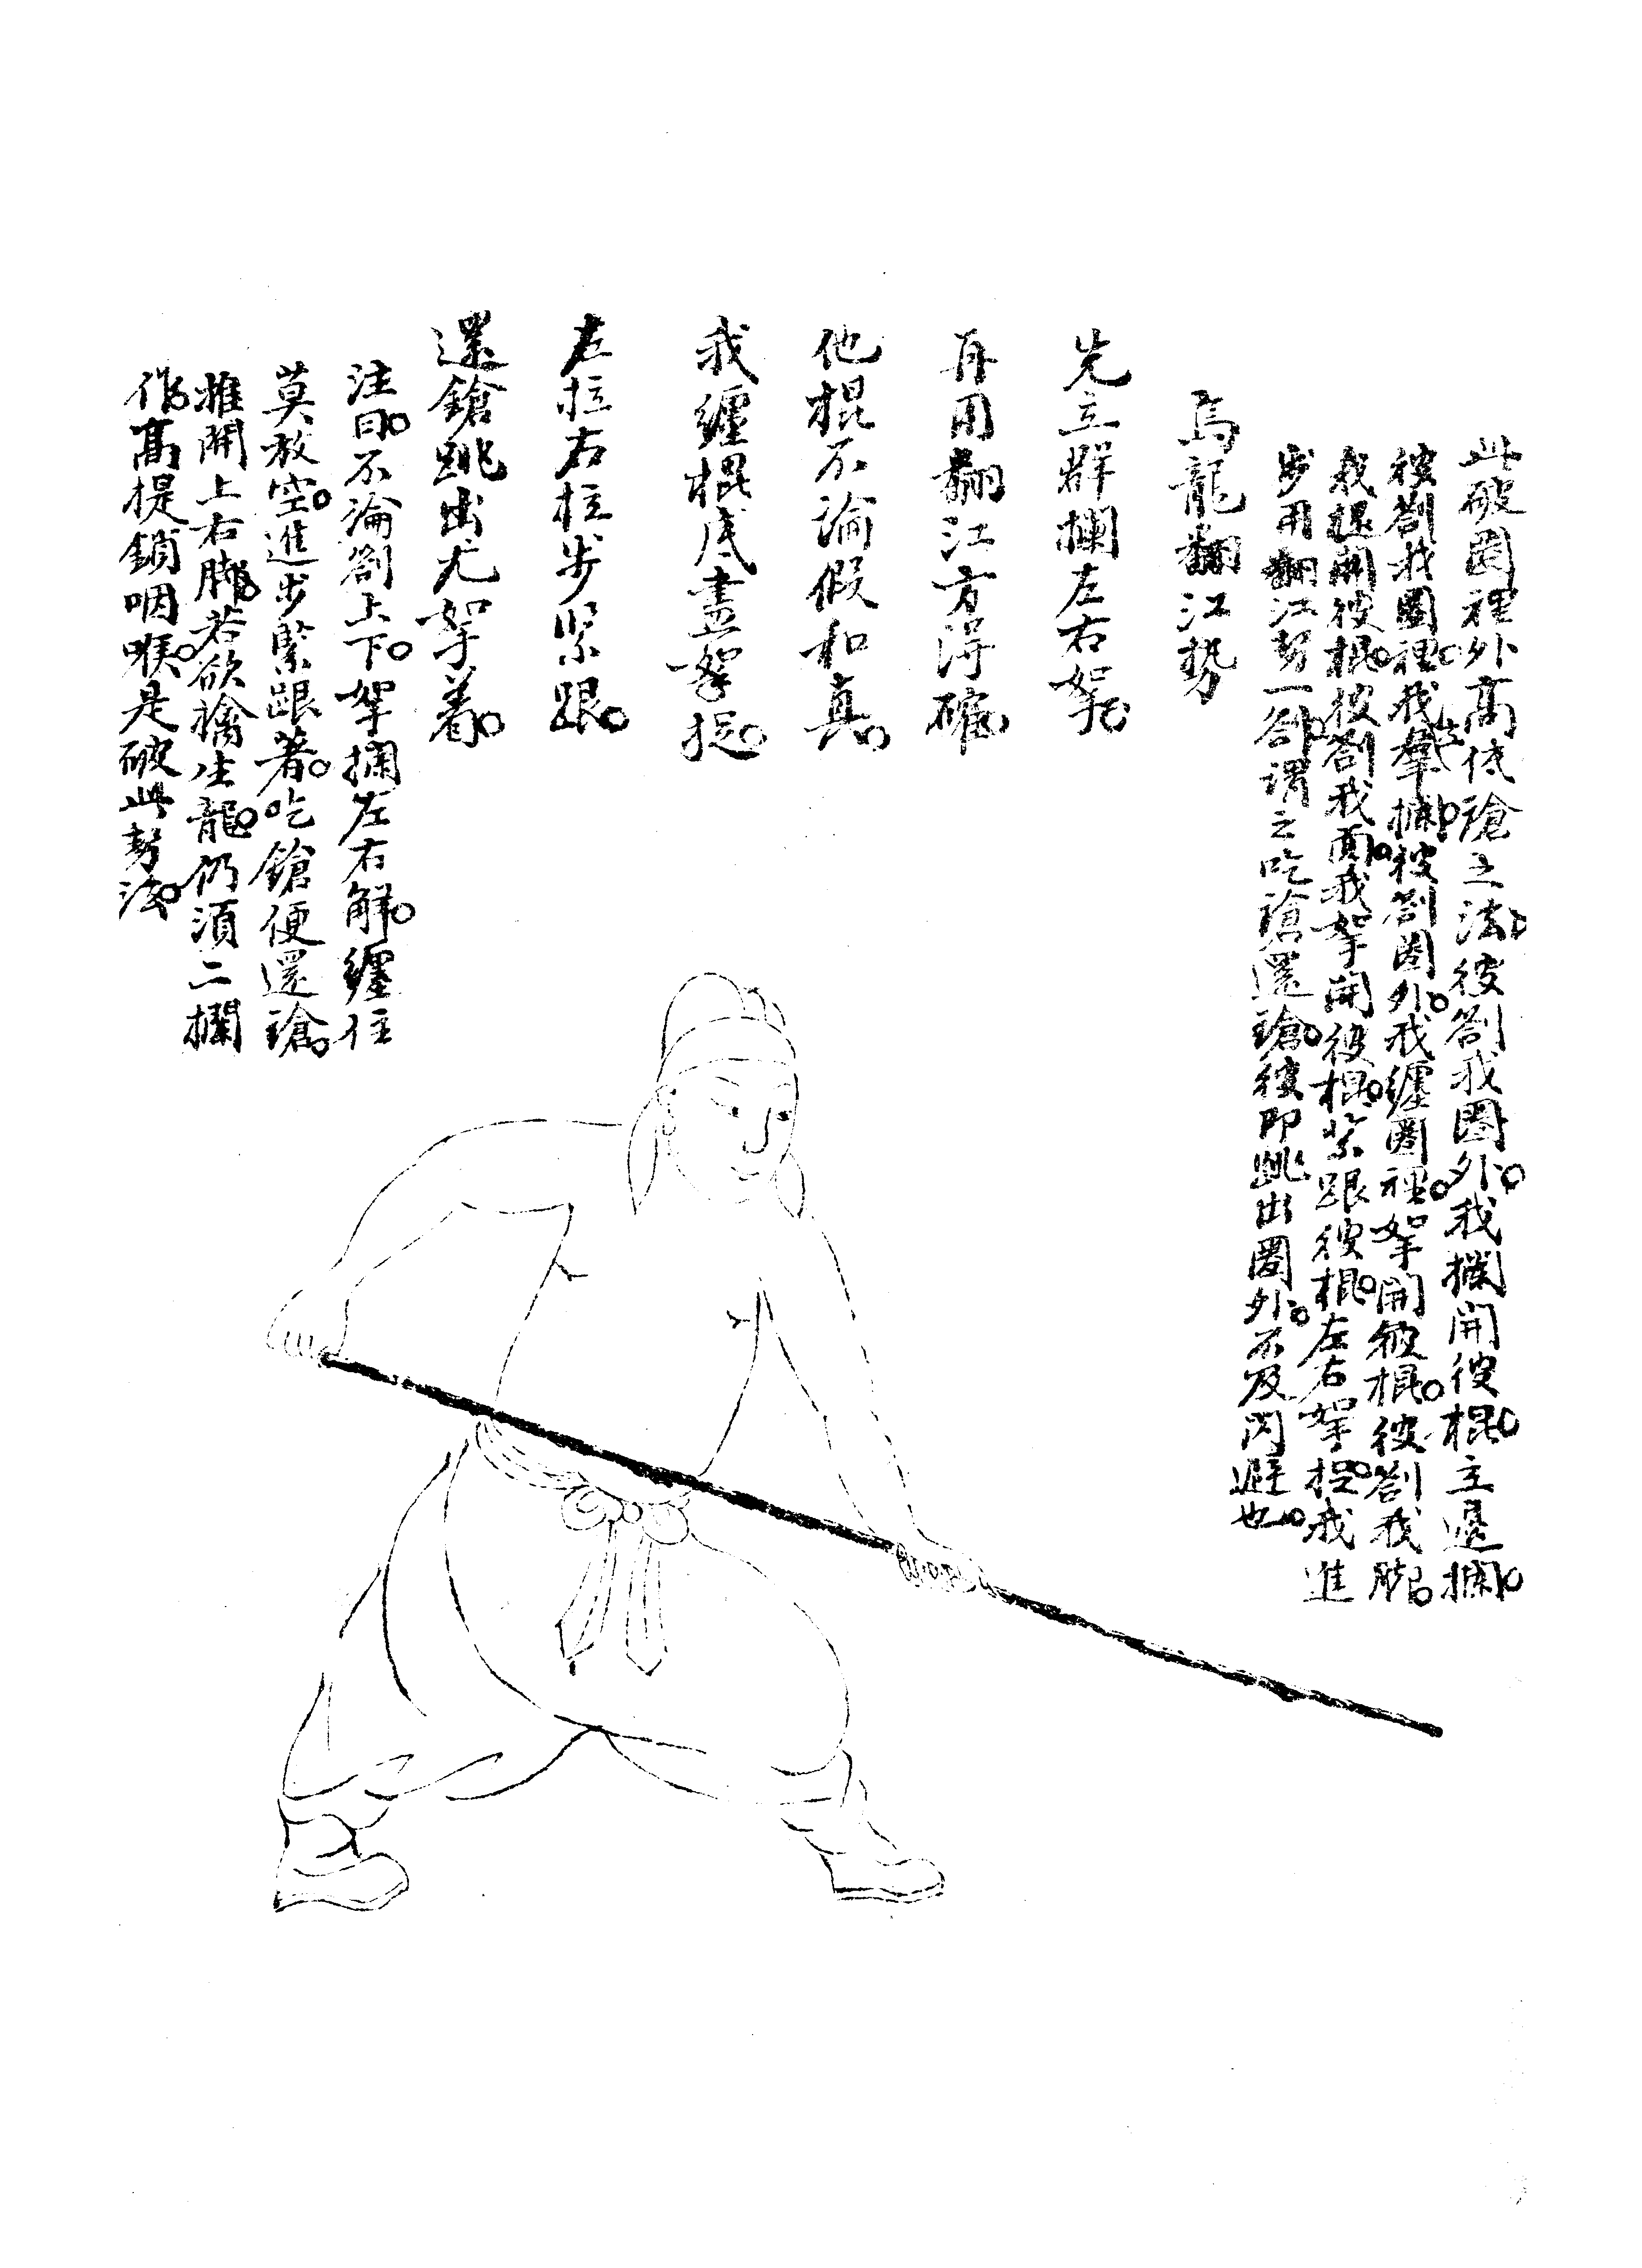 此破圈裡外高低鎗之法。彼劄我圈外。我攔開彼棍。立退攔。
彼劄我圈裡。我立群攔。彼劄圈外。我纏圈裡。拏開彼棍。彼劄我脚。
我提開彼棍。彼劄我面。我拏開彼棍。紧跟彼棍。左右拏捉。我進
步用翻江势一劄。謂之吃鎗還鎗。彼即跳出圈外。不及闪避也。
烏龍翻江势
先立群攔左右拏。
再用翻江方得確。
他棍不論假和真。
我纏棍底盡拏捉。
左拉右拉步紧跟。
還鎗跳出尤拏着。
注曰。不論劄上下。拏攔左右解。纏住
莫放空。進步緊跟著。吃鎗便還鎗。
推開上右脚。若欲擒生龍。仍須二攔
作。高提鎖咽喉。是破此势法。